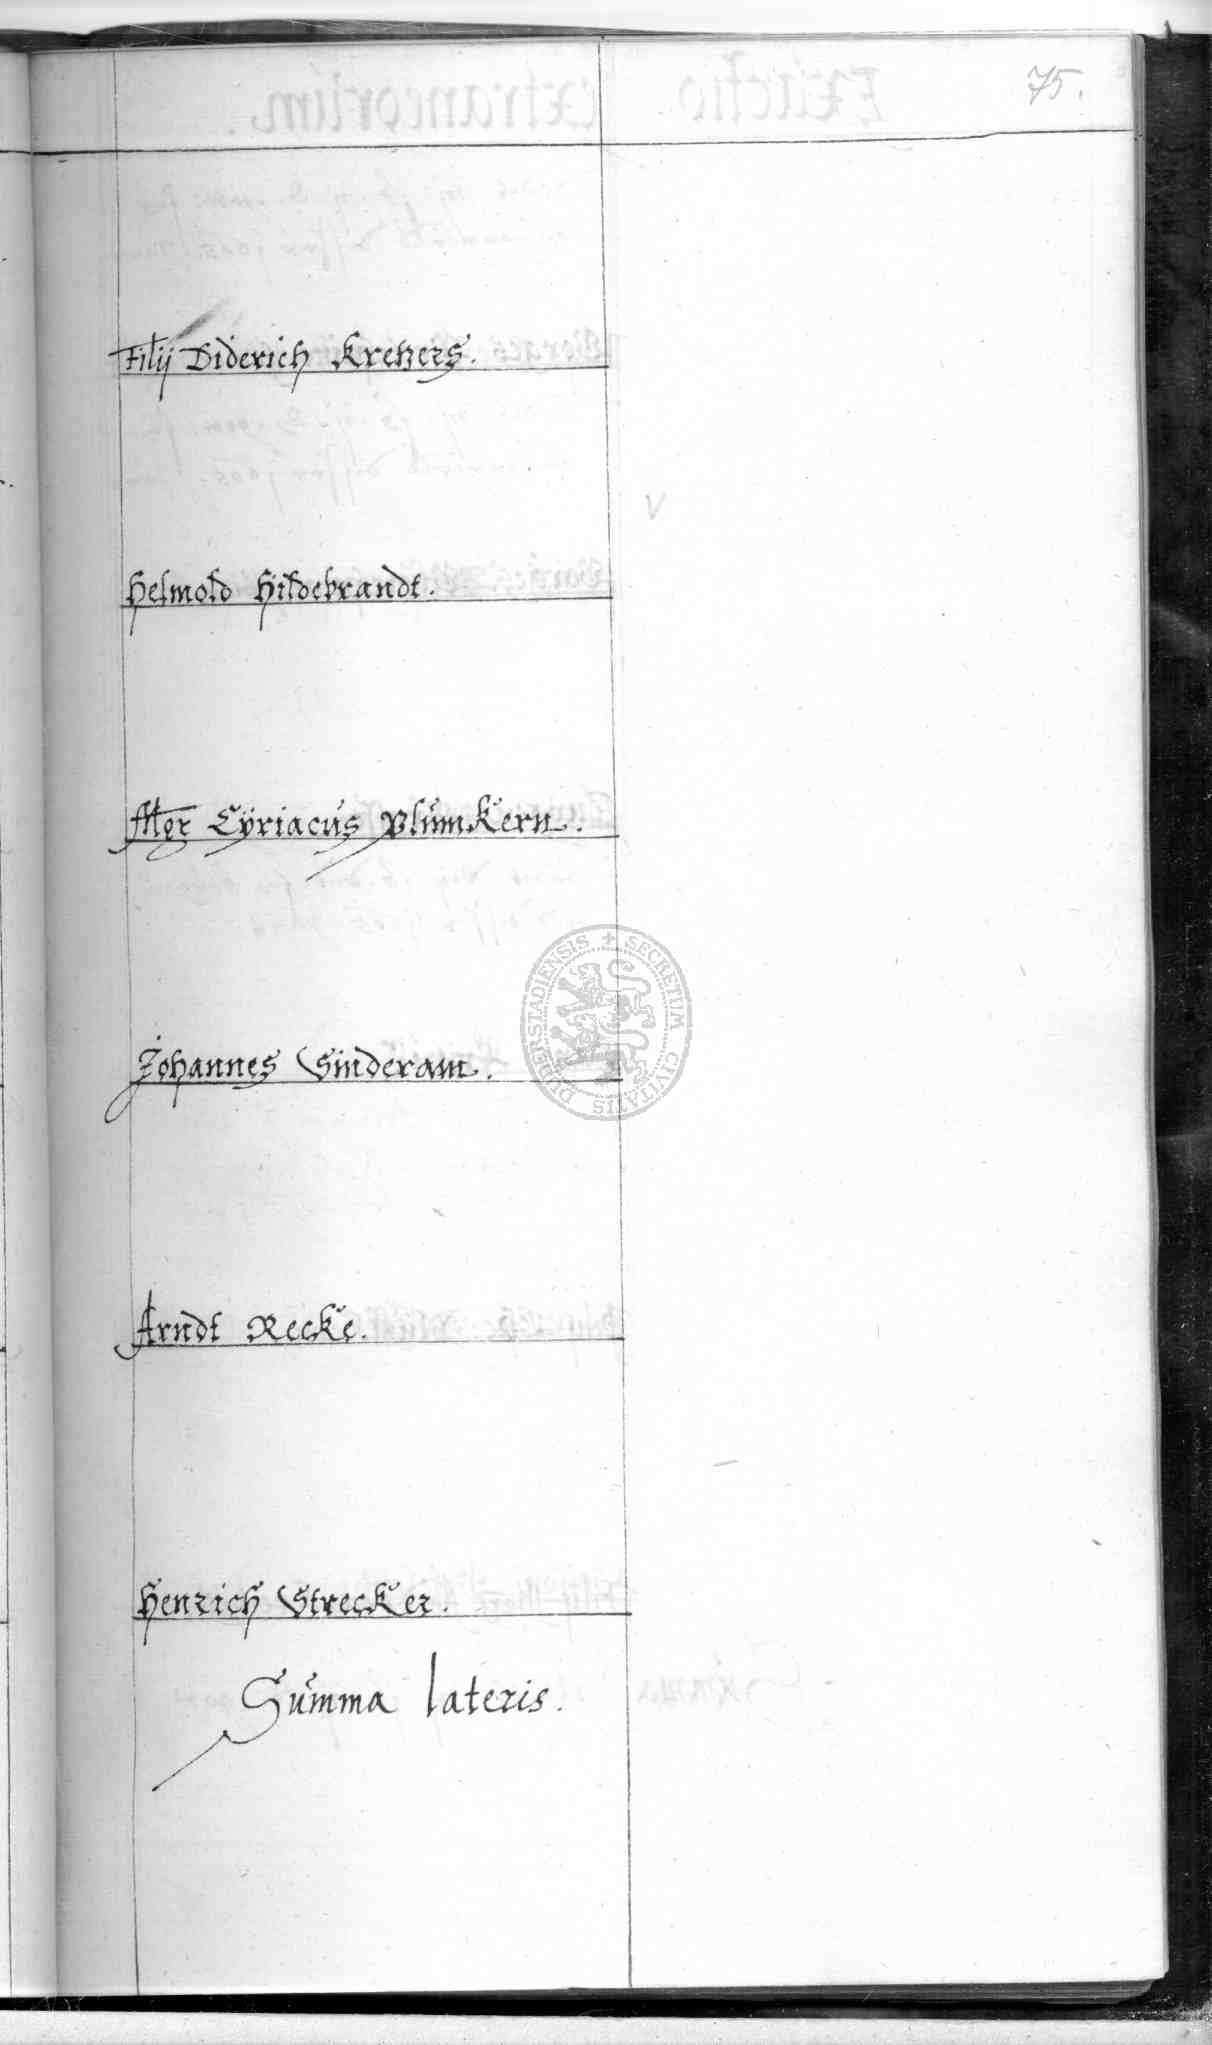 75.
Filij Diderich Kretzers.
Helmold Hildebrandt.
Mgr Cÿriacus Plümkern.
Johannes Sinderam.
DUDERSTADIENSIS + SECRETUM CIVITATIS
Arndt Recke.
Henrich Strecker.
Summa lateris.